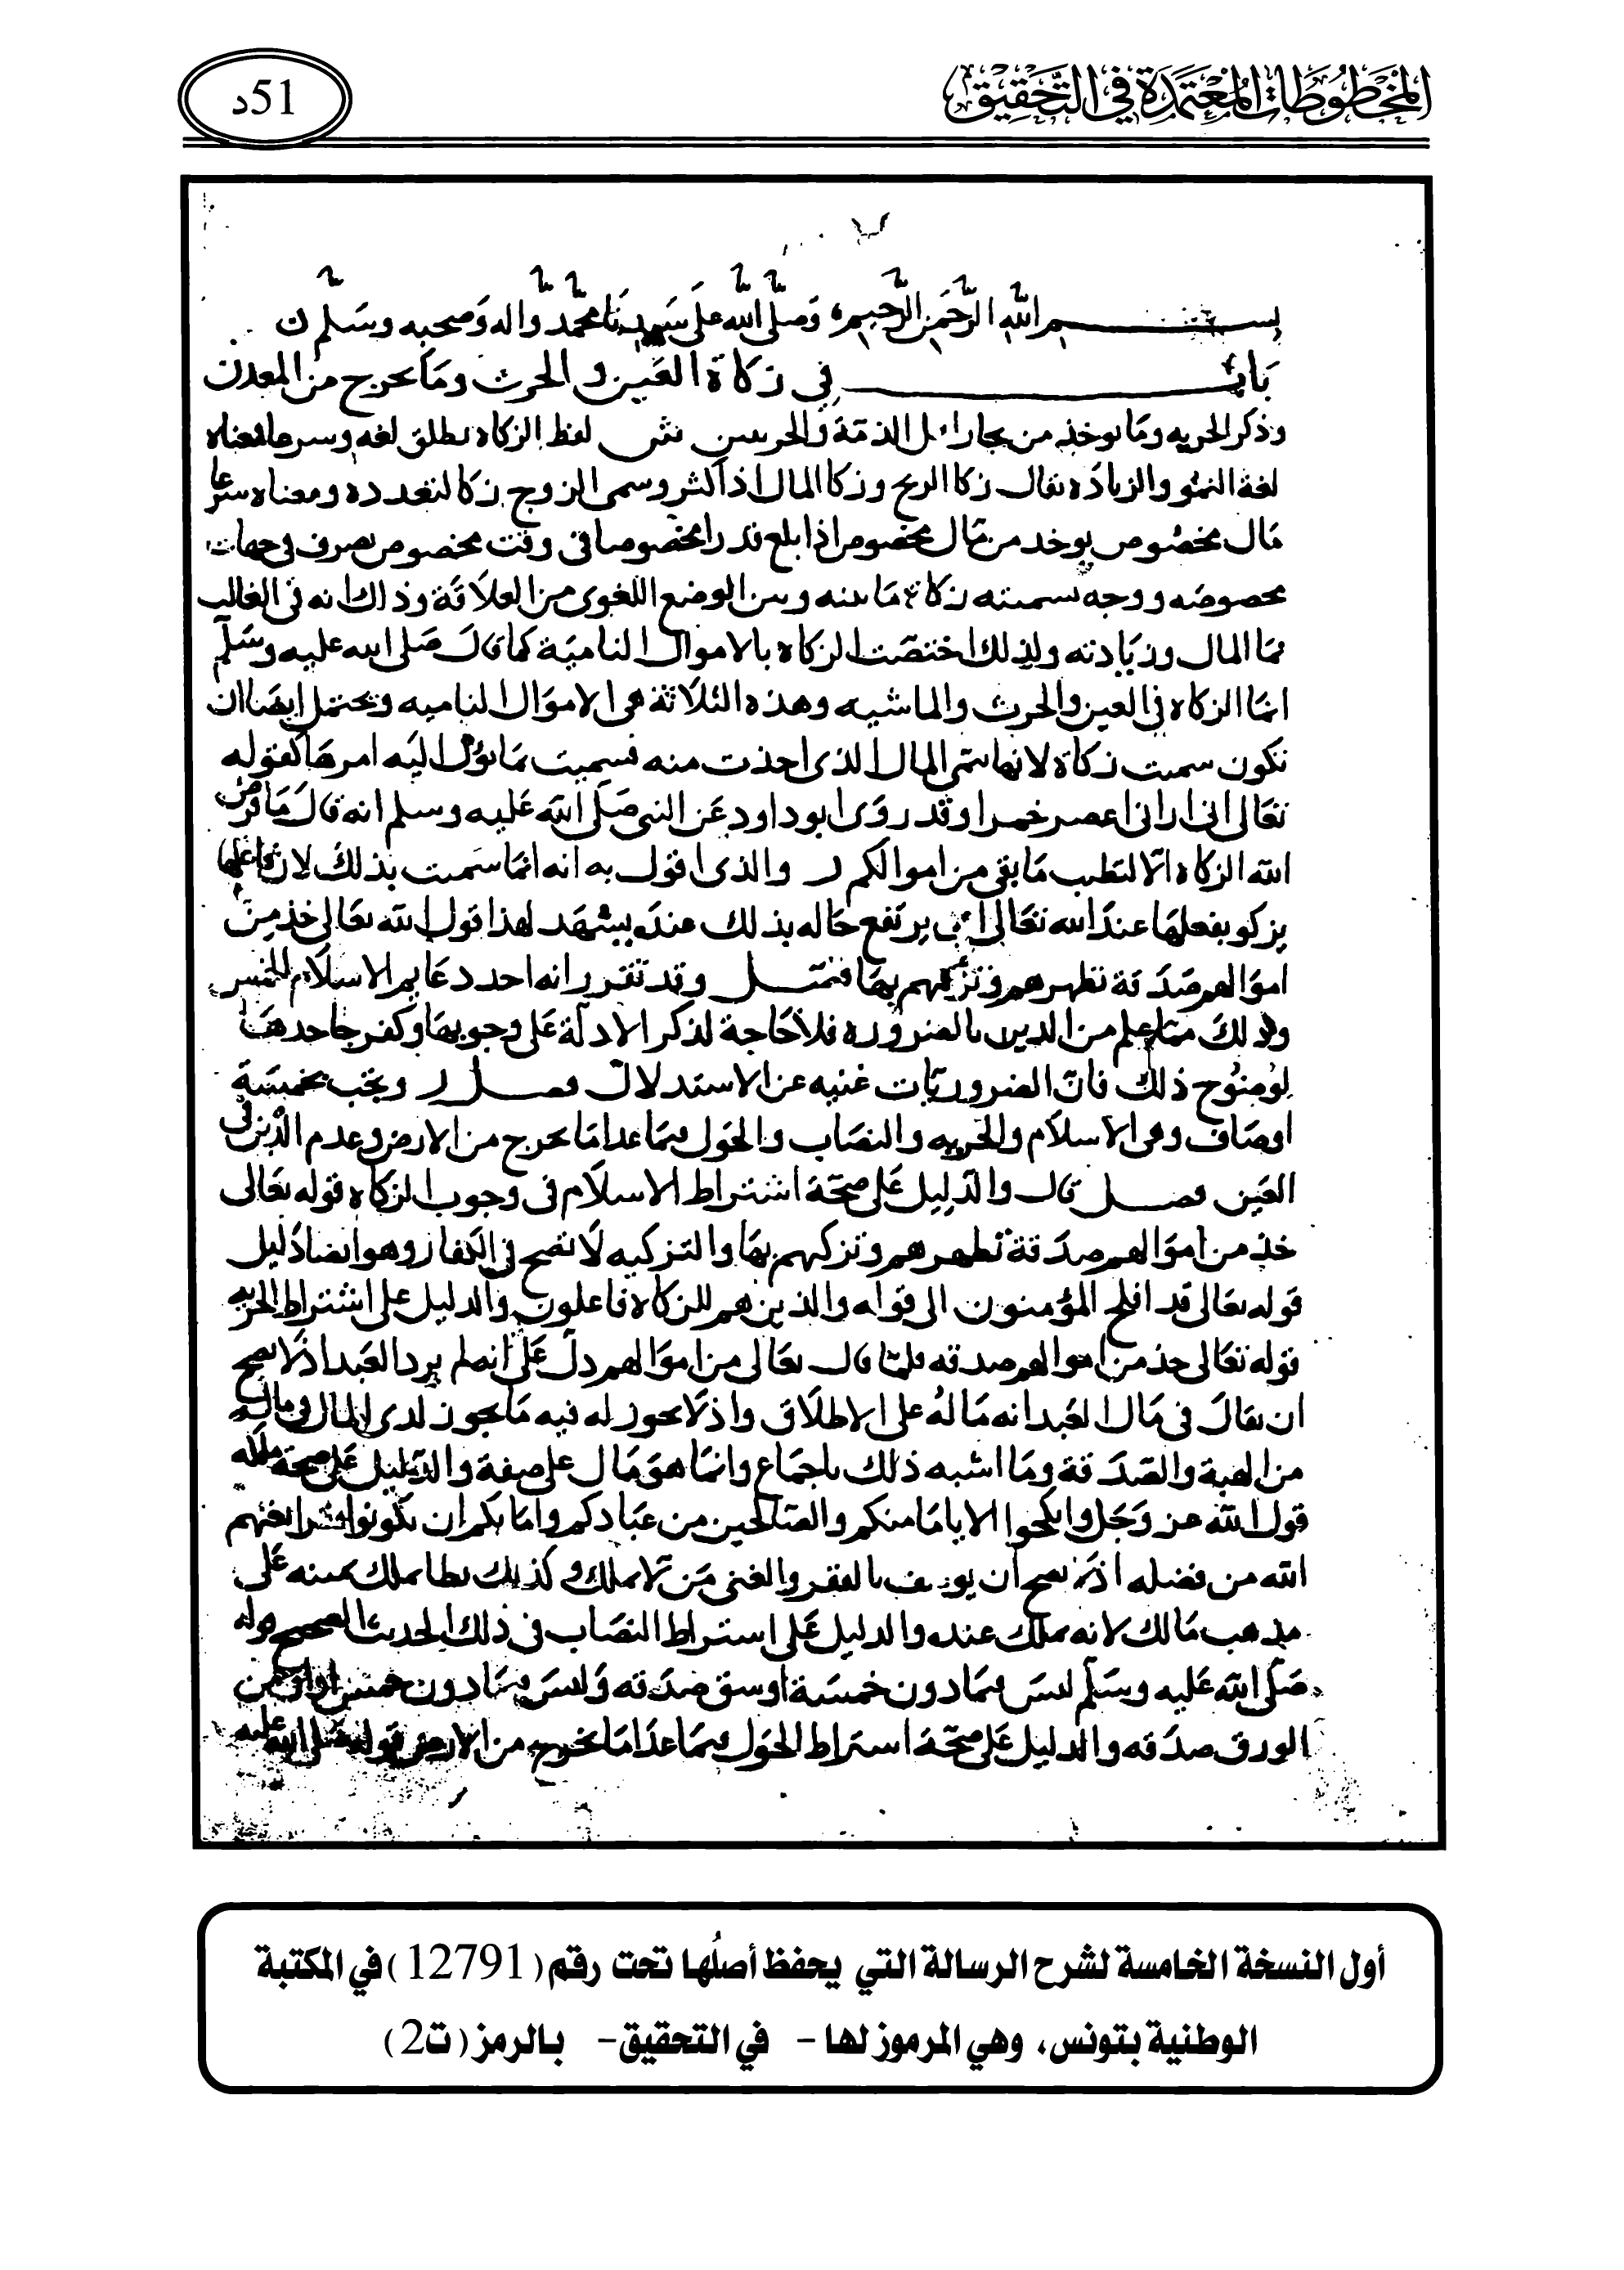 المخطوطات المعتمدة في التحقيق
51د
بسم الله الرحمن الرحيم وصلى الله على سيدنا محمد واله وصحبه وسلم
باب في زكاة العين والحرث وما يخرج من المعدن
وذكر الجزيه وما يوخذ من تجار اهل الذمة والحربيين ش لفظ الزكاه يطلق لغه وشرعا فمعناه
لغة النمو والزياده يقال زكا الريع وزكا المال اذا كثر وسمى الزوج زكا لتعدده ومعناه شرعا
مال مخصوص يوخد من مال مخصوص اذا بلغ قدرا مخصوصا في وقت مخصوص يصرف في جهات
مخصوصه ووجه تسميته زكاة ما بينه وبين الوضع اللغوي من العلاقة وذلك انه في الغالب
نما المال وزيادته ولذلك اختصت الزكاه بالاموال النامية كما قال صلى الله عليه وسلم
انما الزكاه في العين والحرث والماشيه وهذه الثلاثة هي الاموال الناميه ويحتمل ايضا ان
تكون سميت زكاة لانها تنمي المال الذي اخذت منه فسميت بما يؤل اليه امرها كقوله
تعالى اني اراني اعصر خمرا وقد روى ابو داود عن النبي صلى الله عليه وسلم انه قال ما فرض
الله الزكاه الا لتطيب ما بقي من اموالكم والذي اقول به انه انما سميت بذلك لان فاعلها
يزكو بفعلها عند الله تعالى اي يرتفع حاله بذلك عنده يشهد لهذا قول الله تعالى خذ من
اموالهم صدقة تطهرهم وتزكيهم بها فصل وقد تقرر انه احد دعايم الاسلام الخمس
وذلك مما علم من الدين بالضروره فلا حاجة لذكر الادلة على وجوبها وكفر جاحدها
لوضوح ذلك فان الضروريات غنيه عن الاستدلال فصل وتجب بخمسة
اوصاف وهي الاسلام والحريه والنصاب والحول فيما عدا ما يخرج من الارض وعدم الدين في
العين فصل قال والدليل على صحة اشتراط الاسلام في وجوب الزكاه قوله تعالى
خذ من اموالهم صدقة تطهرهم وتزكيهم بها والتزكيه لا تصح في الكفار وهو ايضا دليل
قوله تعالى قد افلح المؤمنون الى قوله والذين هم للزكاه فاعلون والدليل على اشتراط الحريه
قوله تعالى خذ من اموالهم صدقه فلما قال تعالى من اموالهم دل على انه لم يرد العبد اذ لا يصح
ان يقال في مال العبد انه ماله على الاطلاق واذ لا يجوز له فيه ما يجوز لذي المال في ماله
من الهبة والصدقة وما اشبه ذلك باجماع وانما هو مال على صفة والدليل على صحة ملكه
قول الله عز وجل وانكحوا الايامى منكم والصالحين من عبادكم وامايكم ان يكونوا فقرا يغنهم
الله من فضله اذ لا يصح ان يوصف بالفقر والغنى من لا يملك وكذلك يطا بملك يمينه على
مذهب مالك لانه يملك عنده والدليل على اشتراط النصاب في ذلك الحديث الصحيح قوله
صلى الله عليه وسلم ليس فيما دون خمسة اوسق صدقه وليس فيما دون خمس اواق من
الورق صدقه والدليل على صحة اشتراط الحول فيما عدا ما يخرج من الارض قوله صلى الله عليه
أول النسخة الخامسة لشرح الرسالة التي يحفظ أصلُها تحت رقم (12791) في المكتبة
الوطنية بتونس، وهي المرموز لها - في التحقيق- بالرمز (ت2)